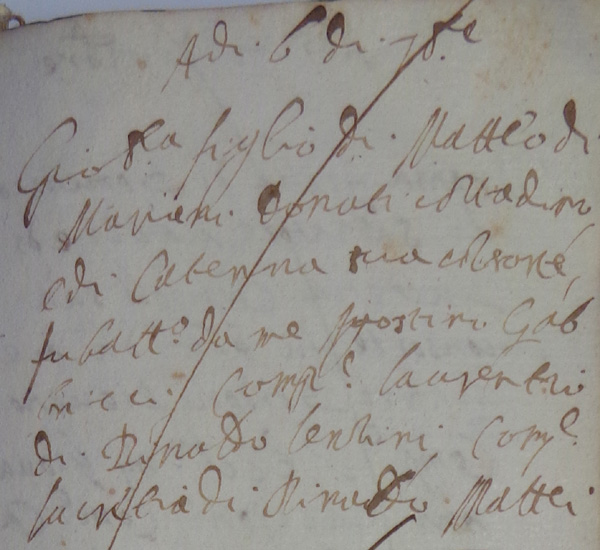 Adi. 6 di. 7bre
Gio Bta figlio di. Matteo di
Mariani. Donati contadini
e di Caterina sua consorte,
fu batto. da me Agostini. Gab
bricci. Compe. Laurentio
di. Rinaldo Lentini, Come.
Lucretia di. Rinaldo. Mattei